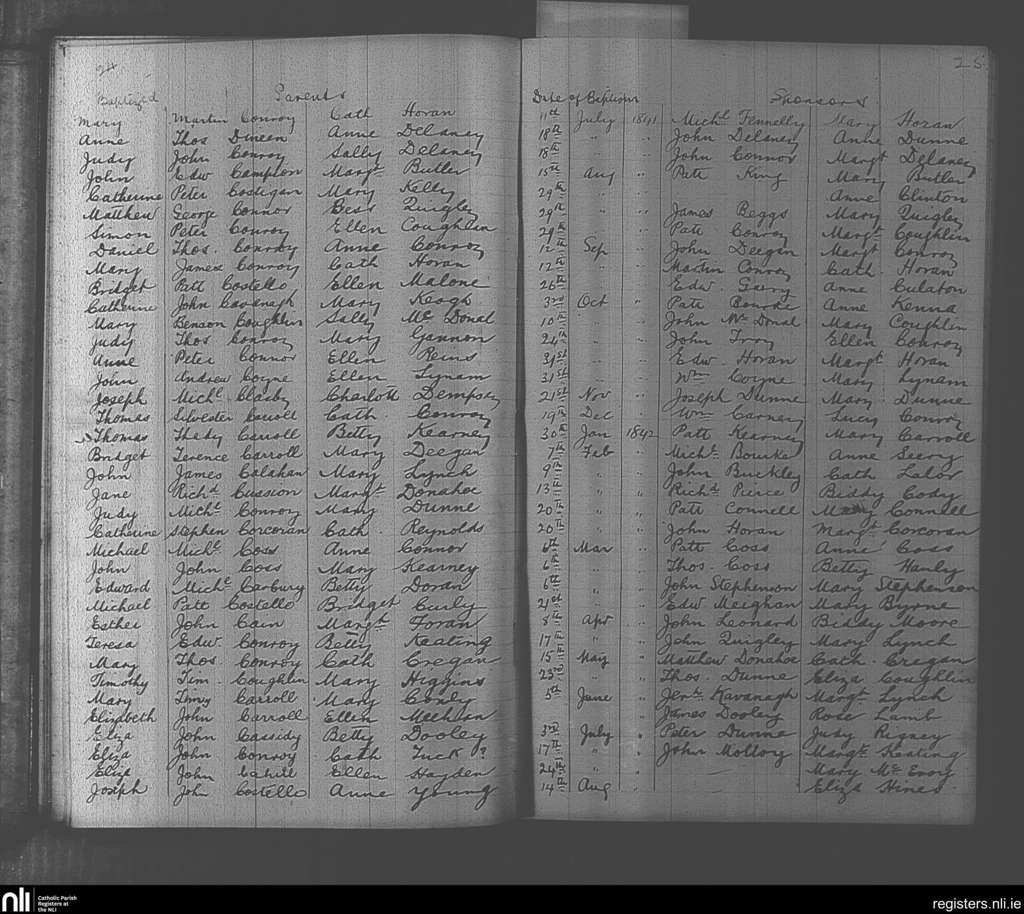 24
25
Baptized Parents Date of Baptism Sponsors
Mary Martin Conroy Cath Horan 11th July 1841 Michl Fennelly Mary Horan
Anne Thos Dineen Anne Delaney 18th " " John Delaney Anne Dunne
Judy John Conroy Sally Delaney 18th " " John Connor Margt Delaney
John Edw Campion Margt Butler 15th Aug " Patt King Mary Butler
Catherine Peter Costigan Mary Kelly 29th " " Anne Clinton
Matthew George Connor Bess Quigley 29th " " James Beggs Mary Quigley
Simon Peter Conroy Ellen Coughlin 29th " " Patt Conroy Margt Coughlin
Daniel Thos. Conroy Anne Conroy 12th Sep " John Deegan Margt Conroy
Mary James Conroy Cath Horan 12th " " Martin Conroy Cath. Horan
Bridget Patt Costello Ellen Malone 26th " " Edw. Gerry Anne Culaton
Catherine John Cavanagh Mary Keogh 3rd Oct " Patt Bourke Anne Kenna
Mary Benson Coughlin Sally Mc Donal 10th " " John Mc Donal Mary Coughlin
Judy Thos Conroy Mary Gannon 24th " " John Troy Ellen Conroy
Anne Peter Connor Ellen Reins 31st " " Edw. Horan Margt Horan
John Andrew Coyne Ellen Lynam 31st " " Wm Coyne Mary Lynam
Joseph Michl Clasby Charlott Dempsey 21st Nov " Joseph Dunne Mary Dunne
Thomas Silvester Carroll Cath Conroy 19th Dec " Wm Carney Lucy Conroy
Thomas Thady Carroll Betty Kearney 30th Jan 1842 Patt Kearney Mary Carroll
Bridget Terence Carroll Mary Deegan 7th Feb " Michl. Bourke Anne Seery
John James Calahan Mary Lynch 9th " " John Buckley Cath Lalor
Jane Richd Cussion Margt Donahoe 13th " " Richd Pierce Biddy Cody
Judy Michl Conroy Mary Dunne 20th " " Patt Connell Mary Connell
Catherine Stephen Corcoran Cath Reynolds 20th " " John Horan Margt Corcoran
Michael Michl Coss Anne Connor 6th Mar " Patt Coss Anne Coss
John John Coss Mary Kearney 6th " " Thos. Coss Betty Hanly
Edward Michl Carbury Betty Doran 6th " " John Stephenson Mary Stephenson
Michael Patt Costello Bridget Curly 21st " " Edw Meighan Mary Byrne
Esther John Cain Margt Foran 8th Apr " John Leonard Biddy Moore
Teresa Edw. Conroy Betty Keating 17th " " John Quigley Mary Lynch
Mary Thos Conroy Cath Cregan 15th May " Matthew Donahoe Cath. Cregan
Timothy Tim. Coughlin Mary Higgins 23rd " " Thos. Dunne Eliza Coughlin
Mary Carroll Mary Conly 5th June " Kavanagh Margt Lynch
Elizabeth John Carroll Ellen Meehan " James Dooley Rose Lamb
Eliza John Cassidy Betty Dooley 3rd July " Peter Dunne Judy Rigney
Eliza John Conroy Cath Tuck ? 17th " " John Molloy Margt Keating
Eliza John Cahill Ellen Hayden 24th " " Mary Mc Evoy
Joseph John Costello Anne Young 14th Aug " Eliza Hines
nli Catholic Parish
Registers at
the NLI
registers.nli.ie